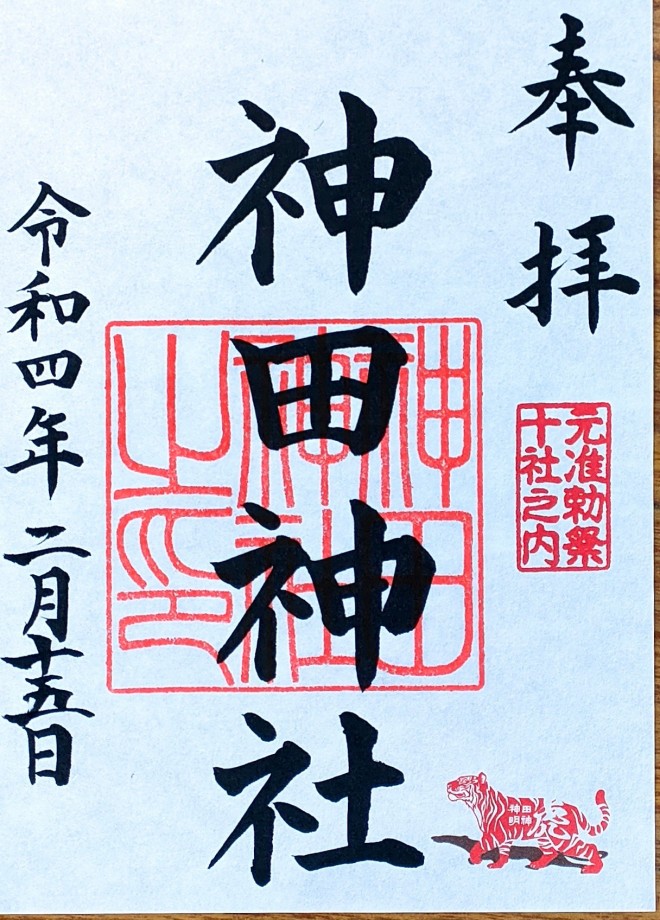 奉拝
元准勅祭
十社之内
神田神社
神田
神社
之印
神田
明神
令和四年二月十五日